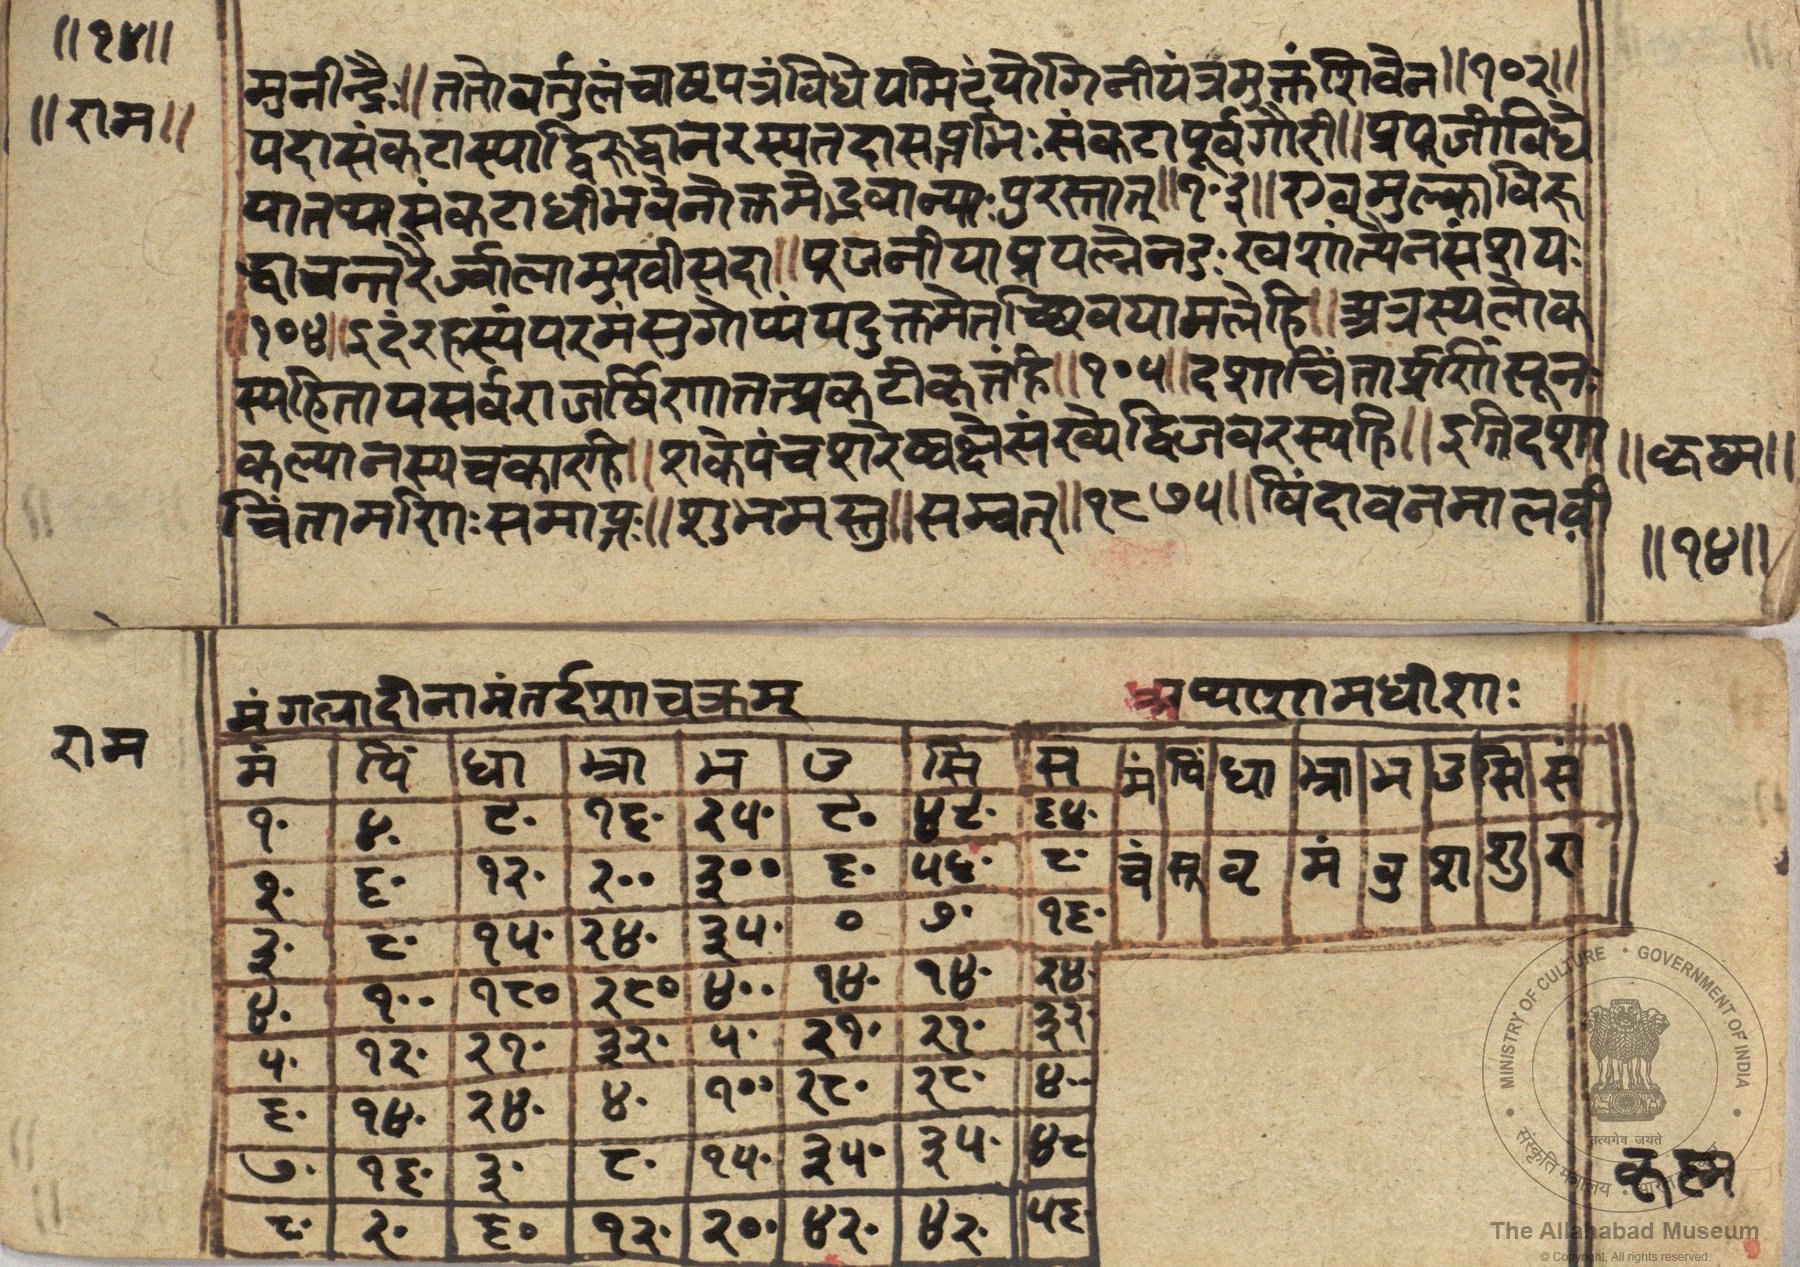 ॥१४॥
॥राम॥
मुनीन्द्रैः॥ततोवर्तुलंचाष्टपत्रंविधेयमिदंयोगिनीयंत्रमुक्तंशिवेन॥१०२॥
यदासंकटास्याद्विरुद्धानरस्यतदासप्तभिःसंकटापूर्वगौरी॥प्रपूजीविधे
यातयासंकटाधीभवेनोक्तमेद्रवान्याःपुरस्तात्॥१०३॥एवमुल्काविरु
द्धाचन्तरैर्ज्वालामुखीसदा॥पूजनीयाप्रयत्नेनदुःखशांत्यैनसंशयः
॥१०४॥इदंरहस्यंपरमंसुगोप्यंयदुक्तमेतच्छिवयामलेहि॥अत्रस्यलोक
स्यहितायसर्वराजर्षिणातत्प्रकटीकृतंहि॥१०५॥दशाचिंतार्मणिंसूनः
कल्यानस्यचकारहि॥शकेपंचशरेष्वक्ष्मैसंख्येद्विजवरस्यहि॥इतिदशा
॥कृष्ण॥
चिंतामणिःसमाप्तः॥शुभमस्तु॥सम्वत्॥१८७५॥बिंदावनमालवी
॥१४॥
राम
मंगल्यादीनामंतर्दशाचक्रम् अप्याशामधीशाः
मं पिं धा भ्रा भ उ सि स मं पिं धा भ्रा भ उ सि सं
१॰ ४॰ ८॰ १६॰ २५॰ ८॰ ४८॰ ६४॰ चं सू वृ मं बु श शु रा
२॰ ६॰ १२॰ २०० ३०० ६॰ ५६॰ ८॰
३॰ ८॰ १५॰ २४॰ ३५॰ ० ७॰ १६॰
४॰ १०० १८० २८० ४०० १४॰ १४॰ २४॰
५॰ १२॰ २१॰ ३२॰ ५॰ २१॰ २१॰ ३२॰
६॰ १४॰ २४॰ ४॰ १०० २८॰ २८॰ ४००
७॰ १६॰ ३॰ ८॰ १५॰ ३५॰ ३५॰ ४८
८॰ २॰ ६० १२॰ २०० ४२॰ ४२॰ ५६॰
कृष्ण
MINISTRY OF CULTURE • GOVERNMENT OF INDIA
सत्यमेव जयते
संस्कृति मंत्रालय • भारत सरकार
The Allahabad Museum
© Copyright, All rights reserved.